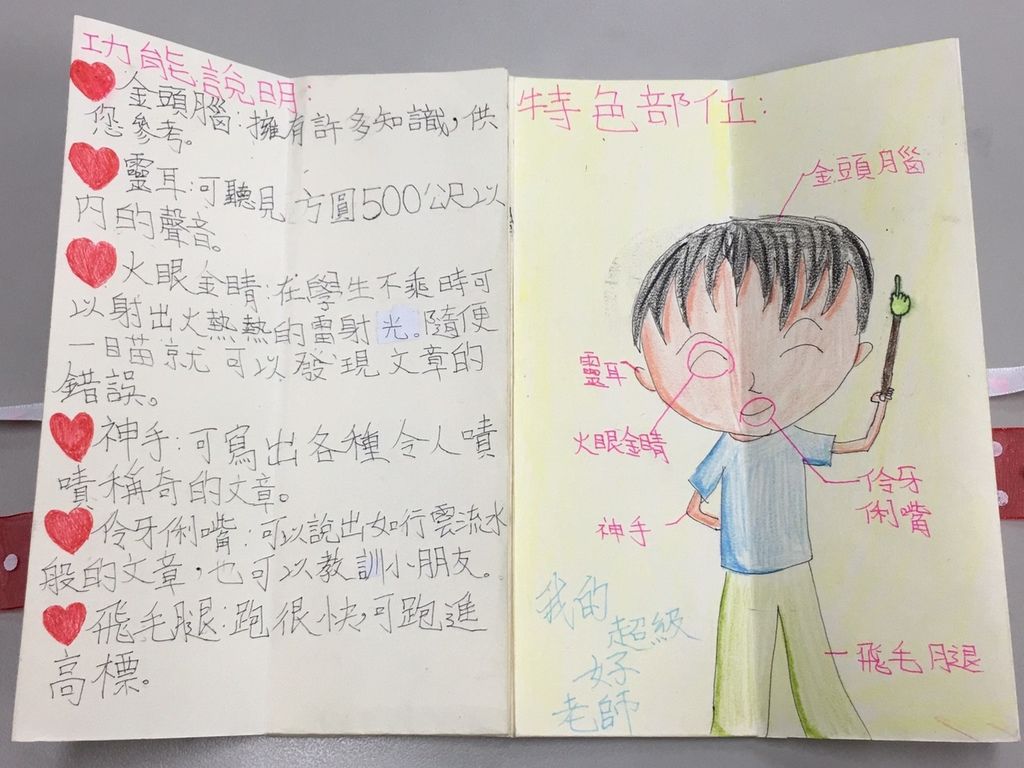 功能說明:
金頭腦:擁有許多知識,供
您參考。
靈耳:可聽見方圓500公尺以
內的聲音。
火眼金睛:在學生不乘時可
以射出火熱熱的雷射光。隨便
一瞄就可以發現文章的
錯誤。
神手:可寫出各種令人嘖
嘖稱奇的文章。
伶牙俐嘴:可以說出如行雲流水
般的文章,也可以教訓小朋友。
飛毛腿:跑很快可跑進
高標。
特色部位:
金頭腦
靈耳
火眼金睛
伶牙
俐嘴
神手
飛毛腿
我的
超級
好
老師